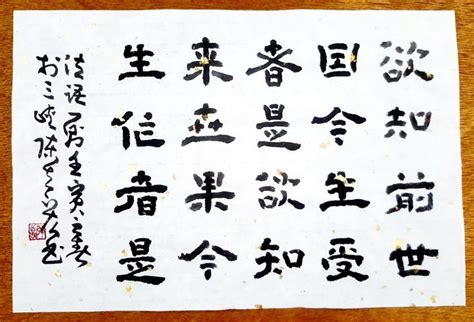 欲知前世
因今生受
者是欲知
来世果今
生作者是
法语一则壬寅之春
于三峡陈书